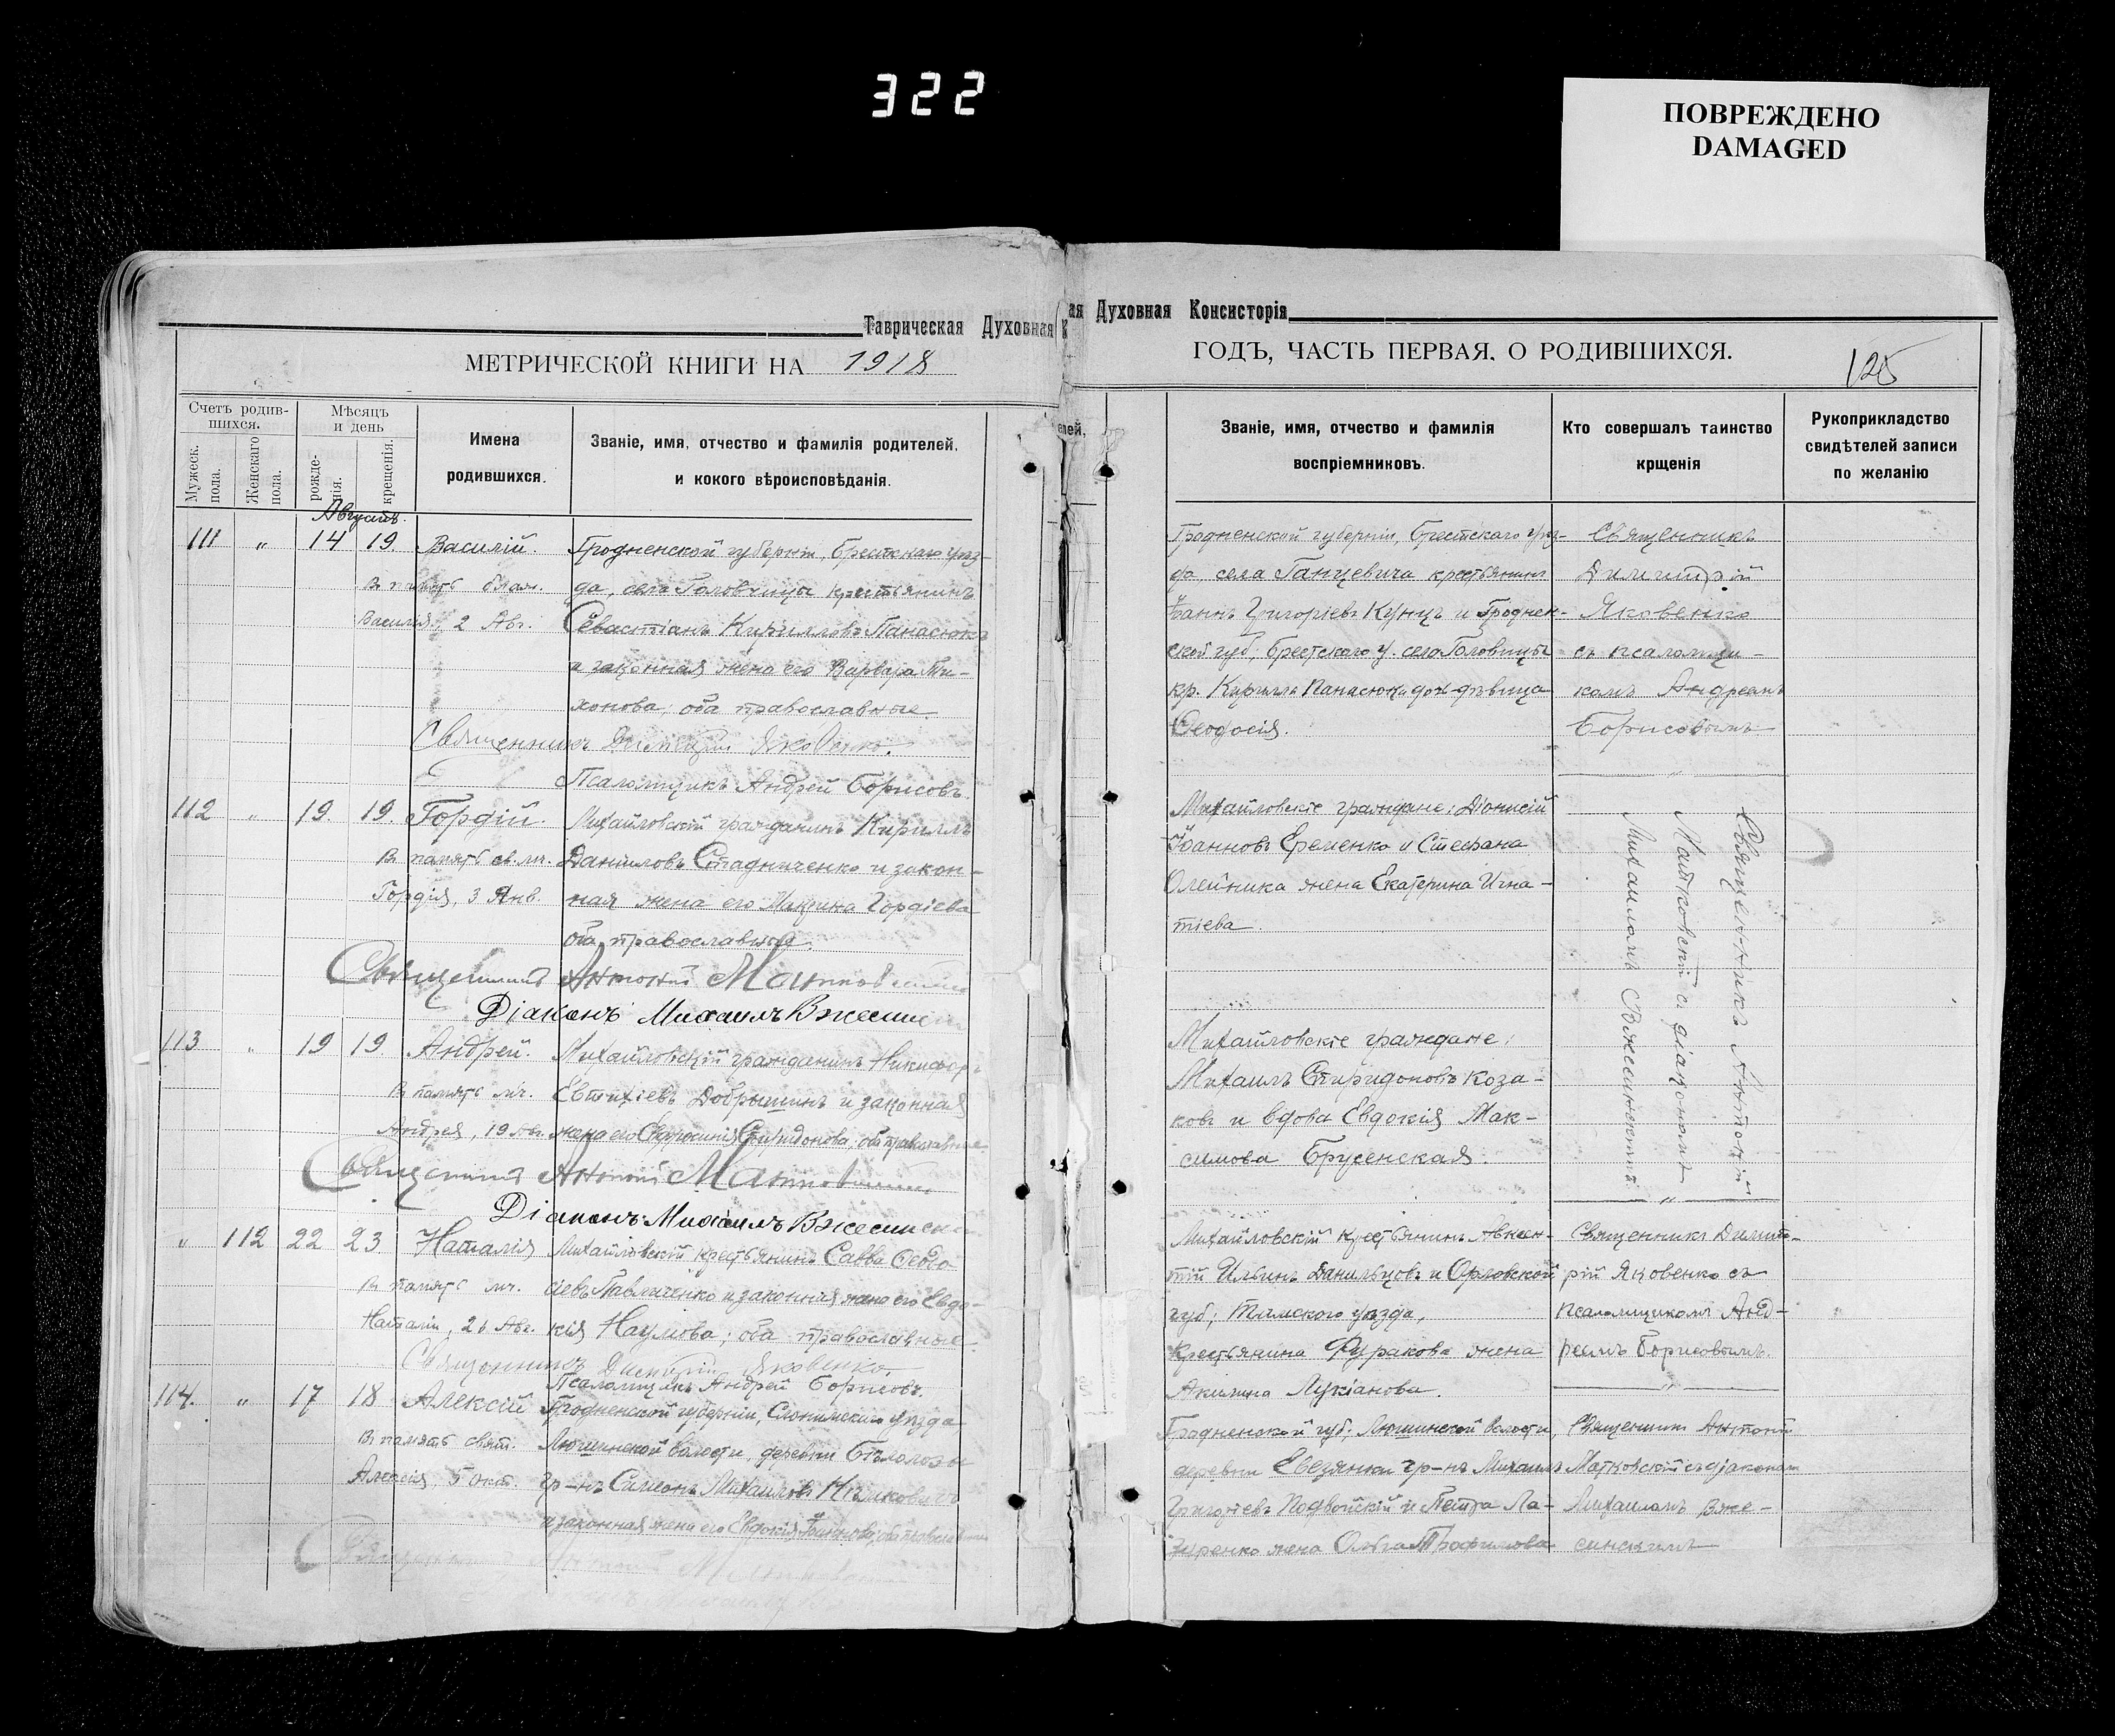 322
ПОВРЕЖДЕНО
DAMAGED
Таврическая Духовная К
ая Духовная Консисторія
МЕТРИЧЕСКОЙ КНИГИ НА 1918
ГОДЪ, ЧАСТЬ ПЕРВАЯ, О РОДИВШИХСЯ.
125
Счетъ родив-
шихся.
Мужеск.
пола.
Женскаго
пола.
Мѣсяцъ
и день
рожде-
нія.
крещенія.
Имена
родившихся.
Званіе, имя, отчество и фамилія родителей,
и кокого вѣроисповѣданія.
елей,
Званіе, имя, отчество и фамилія
воспріемниковъ.
Кто совершалъ таинство
крщенія
Рукоприкладство
свидѣтелей записи
по желанію
Августъ.
111 " 14 19. Василій.
В память блаж.
Василія, 2 Авг.
Гродненской губерніи, Брестскаго уѣз-
да, села Головчицы крестьянинъ
Севастіанъ Кирилловъ Панасюкъ
и законная жена его Варвара Ти-
хонова, оба православные.
Священникъ Димитрій Яковенко.
Псаломщикъ Андрей Борисовъ.
Гродненской губерніи, Брестскаго уѣз-
да села Ганцевича крестьянинъ
Іоаннъ Григорьевъ Кунцъ и Гроднен-
ской губ., Брестского у. села Головчицы
кр. Кирилла Панасюка дочь дѣвица
Феодосія.
Священникъ
Димитрій
Яковенко
съ псаломщи-
комъ Андреемъ
Борисовымъ
112 " 19. 19. Гордій.
В память св. мч.
Гордія, 3 Янв.
Михайловскій гражданинъ Кириллъ
Даниловъ Стадниченко и закон-
ная жена его Макрина Гордіева
оба православные.
Священникъ Антоній Матковскій
Діаконъ Михаилъ Вжесинскій
Михайловскіе граждане: Діонисій
Іоанновъ Еременко и Стефана
Олейника жена Екатерина Игна-
тіева.
Священникъ Антоній
Матковскій съ діакономъ
Михаиломъ Вжесинскимъ
113 " 19 19. Андрей.
В память мч.
Андрея, 19 Авг.
Михайловскій гражданинъ Никифоръ
Евтихіевъ Добрышинъ и законная
жена его Спиридонова, оба православные
Священникъ Антоній Матковскій
Діаконъ Михаилъ Вжесински
Михайловскіе граждане:
Михаилъ Спиридоновъ Коза-
ковъ и вдова Евдокія Мак-
симова Брусенская.
" 112 22 23. Наталія
В память мч.
Наталіи, 26 Авг.
Михайловскій крестьянинъ Савва Феодо
сіевъ Павличенко и законная жена его Евдо-
кія Наумова; оба православные.
Священникъ Димитрій Яковенко.
Псаломщикъ Андрей Борисовъ.
Михайловскій крестьянинъ Авксен-
тій Ильинъ Данильцовъ и Орловской
губ; Тимского уѣзда,
крестьянина Фуракова жена
Акилина Лукіанова.
Священникъ Димит-
рій Яковенко съ
псаломщикомъ Анд-
реемъ Борисовымъ.
114. " 17 18 Алексій
В память свят.
Алексія, 5 окт.
Гродненской губерніи, Слонимскаго уѣзда
Люшинской волости, деревни
гр-нъ Симеонъ Михаиловъ
и законная жена его Евдокія Іоаннова, оба православные
Гродненской губ; Люшинской волости,
деревни гр-нъ Михаилъ
Григоріевъ Подвойскій и Петра Ла-
зиренко жена Ольга Трофимова
Священникъ Антоній
Матковскій съ діакономъ
Михаиломъ Вже-
синскимъ